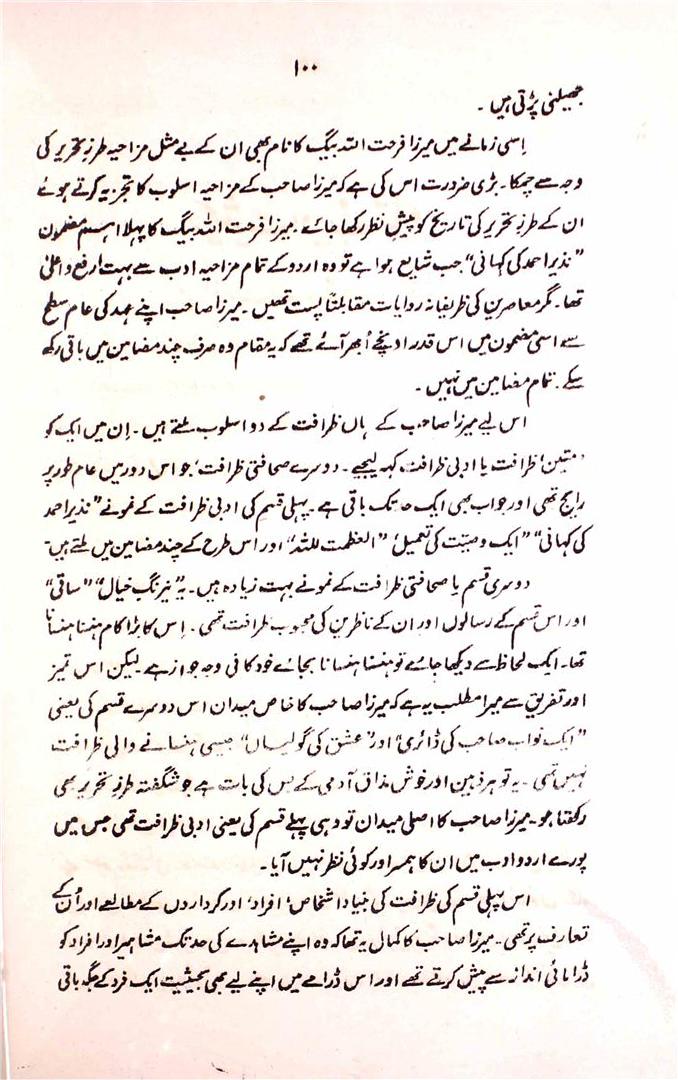 ۱۰۰
جھیلنی پڑتی ہیں ۔
اِسی زمانے میں میرزا فرحت اللہ بیگ کا نام بھی ان کے بے مثل مزاحیہ طرزِ تحریر کی
وجہ سے چمکا ۔ بڑی ضرورت اس کی ہے کہ میرزا صاحب کے مزاحیہ اسلوب کا تجزیہ کرتے ہوئے
ان کے طرزِ تحریر کی تاریخ کو پیشِ نظر رکھا جائے ۔ میرزا فرحت اللہ بیگ کا پہلا اہم مضمون
”نذیر احمد کی کہانی“ جب شایع ہوا ہے تو وہ اردو کے تمام مزاحیہ ادب سے بہت ارفع و اعلیٰ
تھا ۔ مگر معاصرین کی ظریفانہ روایات مقابلتاً پست تھیں ۔ میرزا صاحب اپنے عہد کی عام سطح
سے اسی مضمون میں اس قدر اونچے اُبھر آئے تھے کہ یہ مقام وہ صرف چند مضامین میں باقی رکھ
سکے ۔ تمام مضامین میں نہیں ۔
اس لیے میرزا صاحب کے ہاں ظرافت کے دو اسلوب ملتے ہیں ۔ اِن میں ایک کو
’متین‘ ظرافت یا ادبی ظرافت کہہ لیجیے ۔ دوسرے صحافتی ظرافت‘ جو اس دور میں عام طور پر
رایج تھی اور جو اب بھی ایک حد تک باقی ہے ۔ پہلی قسم کی ادبی ظرافت کے نمونے ”نذیر احمد
کی کہانی“ ”ایک وصیّت کی تعمیل“ ”العظمت للہ“ اور اس طرح کے چند مضامین میں ملتے ہیں ۔
دوسری قسم یا صحافتی ظرافت کے نمونے بہت زیادہ ہیں ۔ یہ ”نیرنگ خیال“ ”ساقی“
اور اس قسم کے رسالوں اور ان کے ناظرین کی محبوب ظرافت تھی ۔ اِس کا بڑا کام ہنسنا ہنسانا
تھا ۔ ایک لحاظ سے دیکھا جائے تو ہنسنا ہنسانا بجائے خود کافی وجہ جواز ہے ۔ لیکن اس تمیز
اور تفریق سے میرا مطلب یہ ہے کہ میرزا صاحب کا خاص میدان اس دوسرے قسم کی یعنی
”ایک نواب صاحب کی ڈائری“ اور ”عشق کی گولیاں“ جیسی ہنسانے والی ظرافت
نہیں تھی ۔ یہ تو ہر ذہین اور خوش مذاق آدمی کے بس کی بات ہے جو شگفتہ طرزِ تحریر بھی
رکھتا ہو ۔ میرزا صاحب کا اصلی میدان تو وہی پہلے قسم کی یعنی ادبی ظرافت تھی جس میں
پورے اردو ادب میں ان کا ہمسر اور کوئی نظر نہیں آیا ۔
اس پہلی قسم کی ظرافت کی بنیاد اشخاص‘ افراد‘ اور کرداروں کے مطالعے اور اُن کے
تعارف پر تھی ۔ میرزا صاحب کا کمال یہ تھا کہ وہ اپنے مشاہدے کی حد تک مشاہیر اور افراد کو
ڈرامائی انداز سے پیش کرتے تھے اور اس ڈرامے میں اپنے لیے بھی بحیثیت ایک فرد کے جگہ باقی